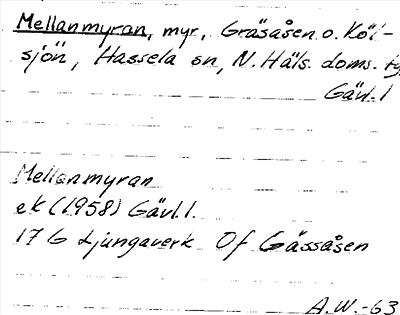 Mellanmyran, myr, Gräsåsen o. Köl-
sjön, Hassela sn, N. Häls. doms.
Gävl. l
Mellanmyran
ek (1958) Gävl. l.
17 G Ljungaverk Of Gässåsen
A.W.-63